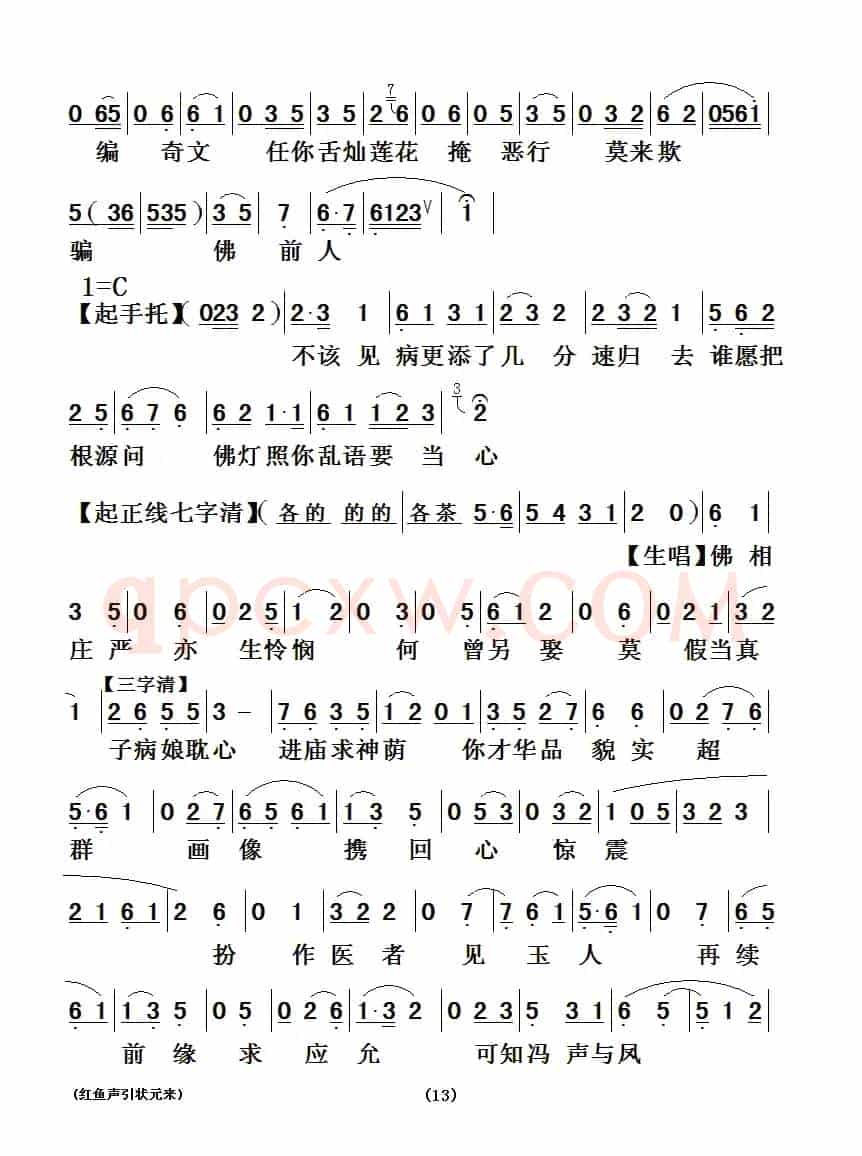 0 65 | 0 6 | 6 1 | 0 3 5 | 3 5 | 7 2 6 | 0 6 | 0 5 | 3 5 | 0 3 2 | 6 2 | 0561
编 奇文 任你舌灿莲花 掩 恶行 莫来欺
5 ( 36 | 535 ) | 3 5 | 7 | 6·7 | 6123 V | 1
骗 佛 前 人
1=C
【起手托】( 023 2 ) | 2·3 1 | 6 1 3 1 | 2 3 2 | 2 3 2 1 | 5 6 2
不该 见 病更添了几 分 速归 去 谁愿把
2 5 | 6 7 6 | 6 2 1·1 | 6 1 1 2 3 | 3 2
根源问 佛灯照你乱语要 当 心
【起正线七字清】( 各的 的的 | 各茶 5·6 | 5 4 3 1 | 2 0 ) | 6 1
【生唱】佛 相
3 5 | 0 6 | 0 2 5 | 1 2 | 0 3 | 0 5 | 6 1 2 | 0 6 | 0 2 1 | 3 2
庄 严 亦 生怜悯 何 曾另 娶 莫 假当真
【三字清】
1 | 2 6 5 5 | 3 – | 7 6 3 5 | 1 2 0 1 | 3 5 2 7 | 6 6 | 0 2 7 6
子病娘耽心 进庙求神荫 你才华品 貌 实 超
5·6 1 | 0 2 7 | 6 5 6 1 | 1 3 5 | 0 5 3 | 0 3 2 | 1 0 5 | 3 2 3
群 画 像 携 回 心 惊 震
2 1 6 1 | 2 6 | 0 1 | 3 2 2 | 0 7 | 7 6 1 | 5·6 1 | 0 7 | 6 5
扮 作医者 见 玉 人 再 续
6 1 | 1 3 5 | 0 5 | 0 2 6 | 1·3 2 | 0 2 3 | 5 3 1 | 6 5 | 5 1 2
前 缘 求 应 允 可知冯 声与凤
(红鱼声引状元来)
(13)
qpcxw.COM